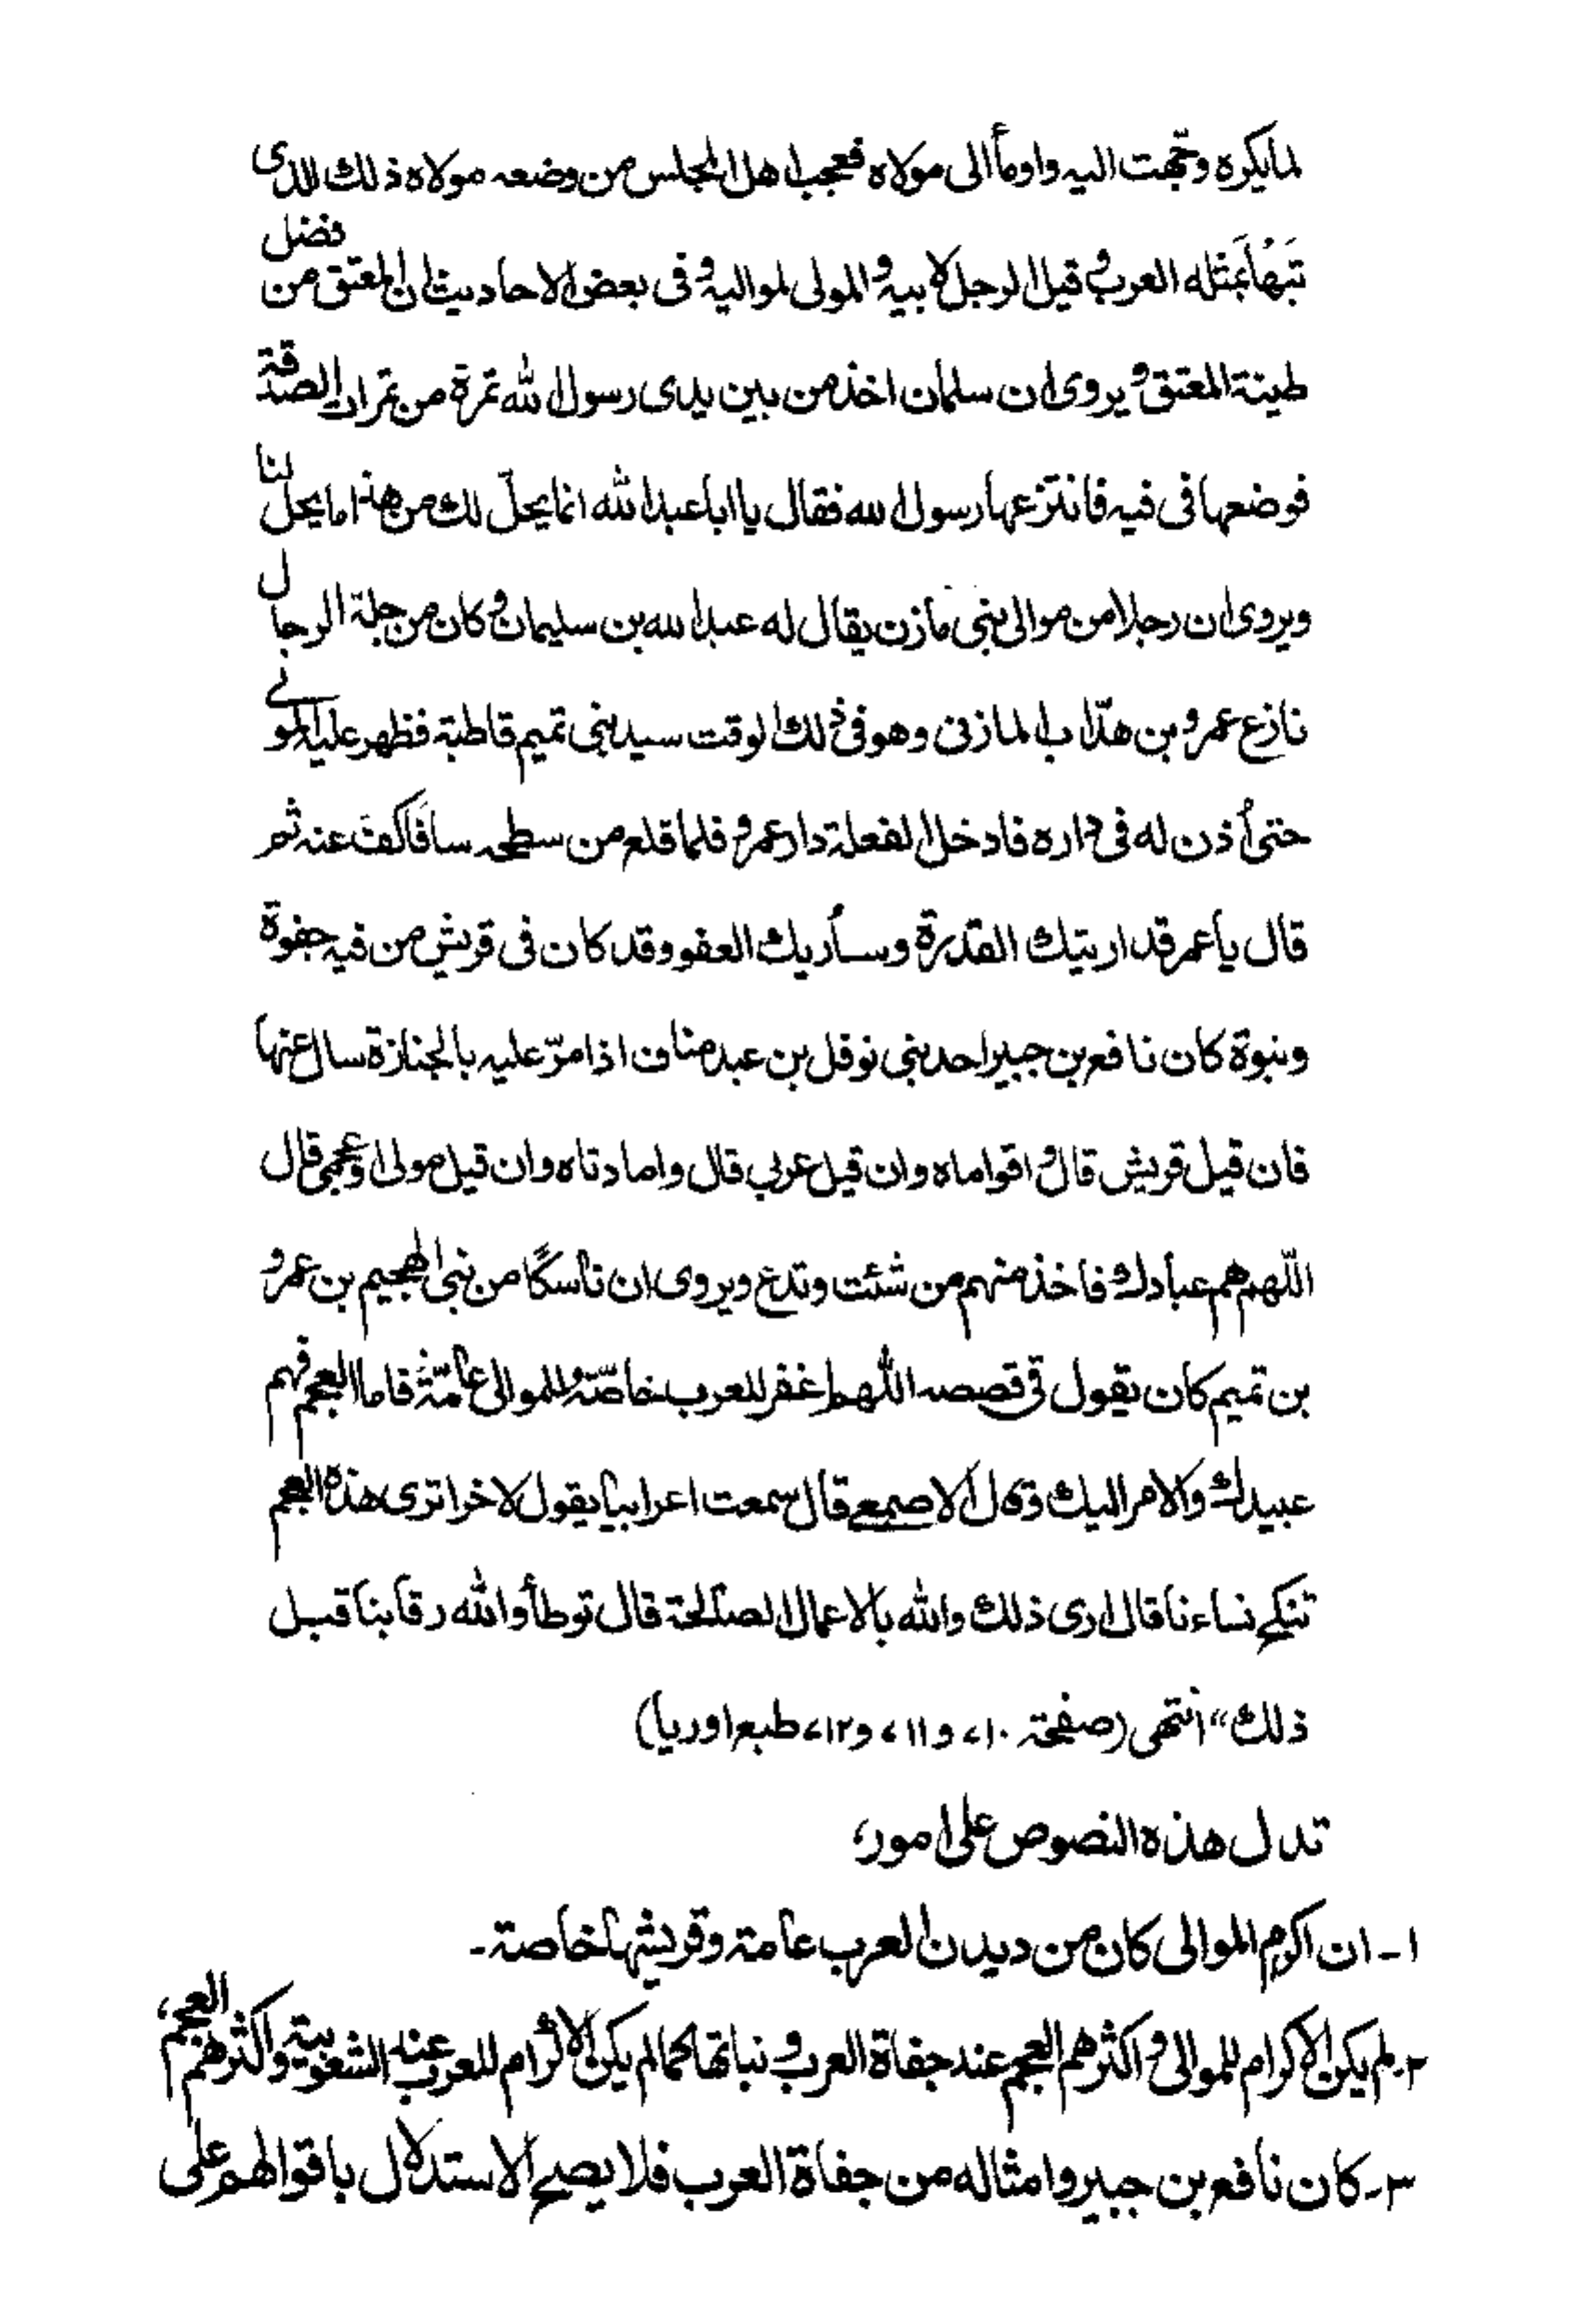 لما يكره وتجهت اليه واومأ الى مولاه فعجب اهل المجلس من وضعه مولاه ذلك الذى
تبهأ بمثله العرب و قيل الرجل لابيه والمولى لمواليه و فى بعض الاحاديث ان المعتق من فضل
طينة المعتق و يروى ان سلمان اخذ من بين يدى رسول الله تمرة من تمرات الصدقة
فوضعها فى فيه فانتزعها رسول الله فقال يا ابا عبدالله انما يحلّ لك من هذا ما يحلّ لنا
ويروى ان رجلا من موالى بنى مازن يقال له عبدالله بن سليمان و كان من جلة الرجال
نازع عمرو بن هدّاب المازنى وهو فى ذلك الوقت سيد بنى تميم قاطبة فظهر عليه المولى
حتى أذن له فى داره فادخل الفعلة دار عمرو فلما قلع من سطحه سافا كفّ عنه ثم
قال يا عمر قد اريتك القدرة وسأريك العفو وقد كان فى قريش من فيه جفوة
ونبوة كان نافع بن جبير احد بنى نوفل بن عبد مناف اذا مرّ عليه بالجنازة سال عنها
فان قيل قريش قال و اقواماه وان قيل عربى قال وامادتاه وان قيل مولى او عجمى قال
اللّهم هم عبادك فاخذ منهم من شئت وتدع ويروى ان ناسكًا من بنى الهجيم بن عمرو
بن تميم كان يقول فى قصصه اللّهم اغفر للعرب خاصّة وللموالى عامّة فاما العجم فهم
عبيدك والامر اليك وقال الاصمعى قال سمعت اعرابيا يقول لاخر اترى هذه العجم
تنكح نساءنا قال ارى ذلك والله بالاعمال الصالحة قال توطأ والله رقابنا قبل
ذلك" انتهى (صفحة ٧١٠ و ٧١١ و ٧١٢ طبع اوربا)
تدل هذه النصوص على امور،
١ـ ان اكرم الموالى كان من ديدن العرب عامة وقريشها خاصة۔
٢ـ لم يكن الاكرام للموالى و اكثرهم العجم عند جفاة العرب و نباتها كما لم يكن الاكرام للعرب عند الشعوبية واكثرهم العجم،
٣ـ كان نافع بن جبير وامثاله من جفاة العرب فلا يصح الاستدلال باقوالهم على